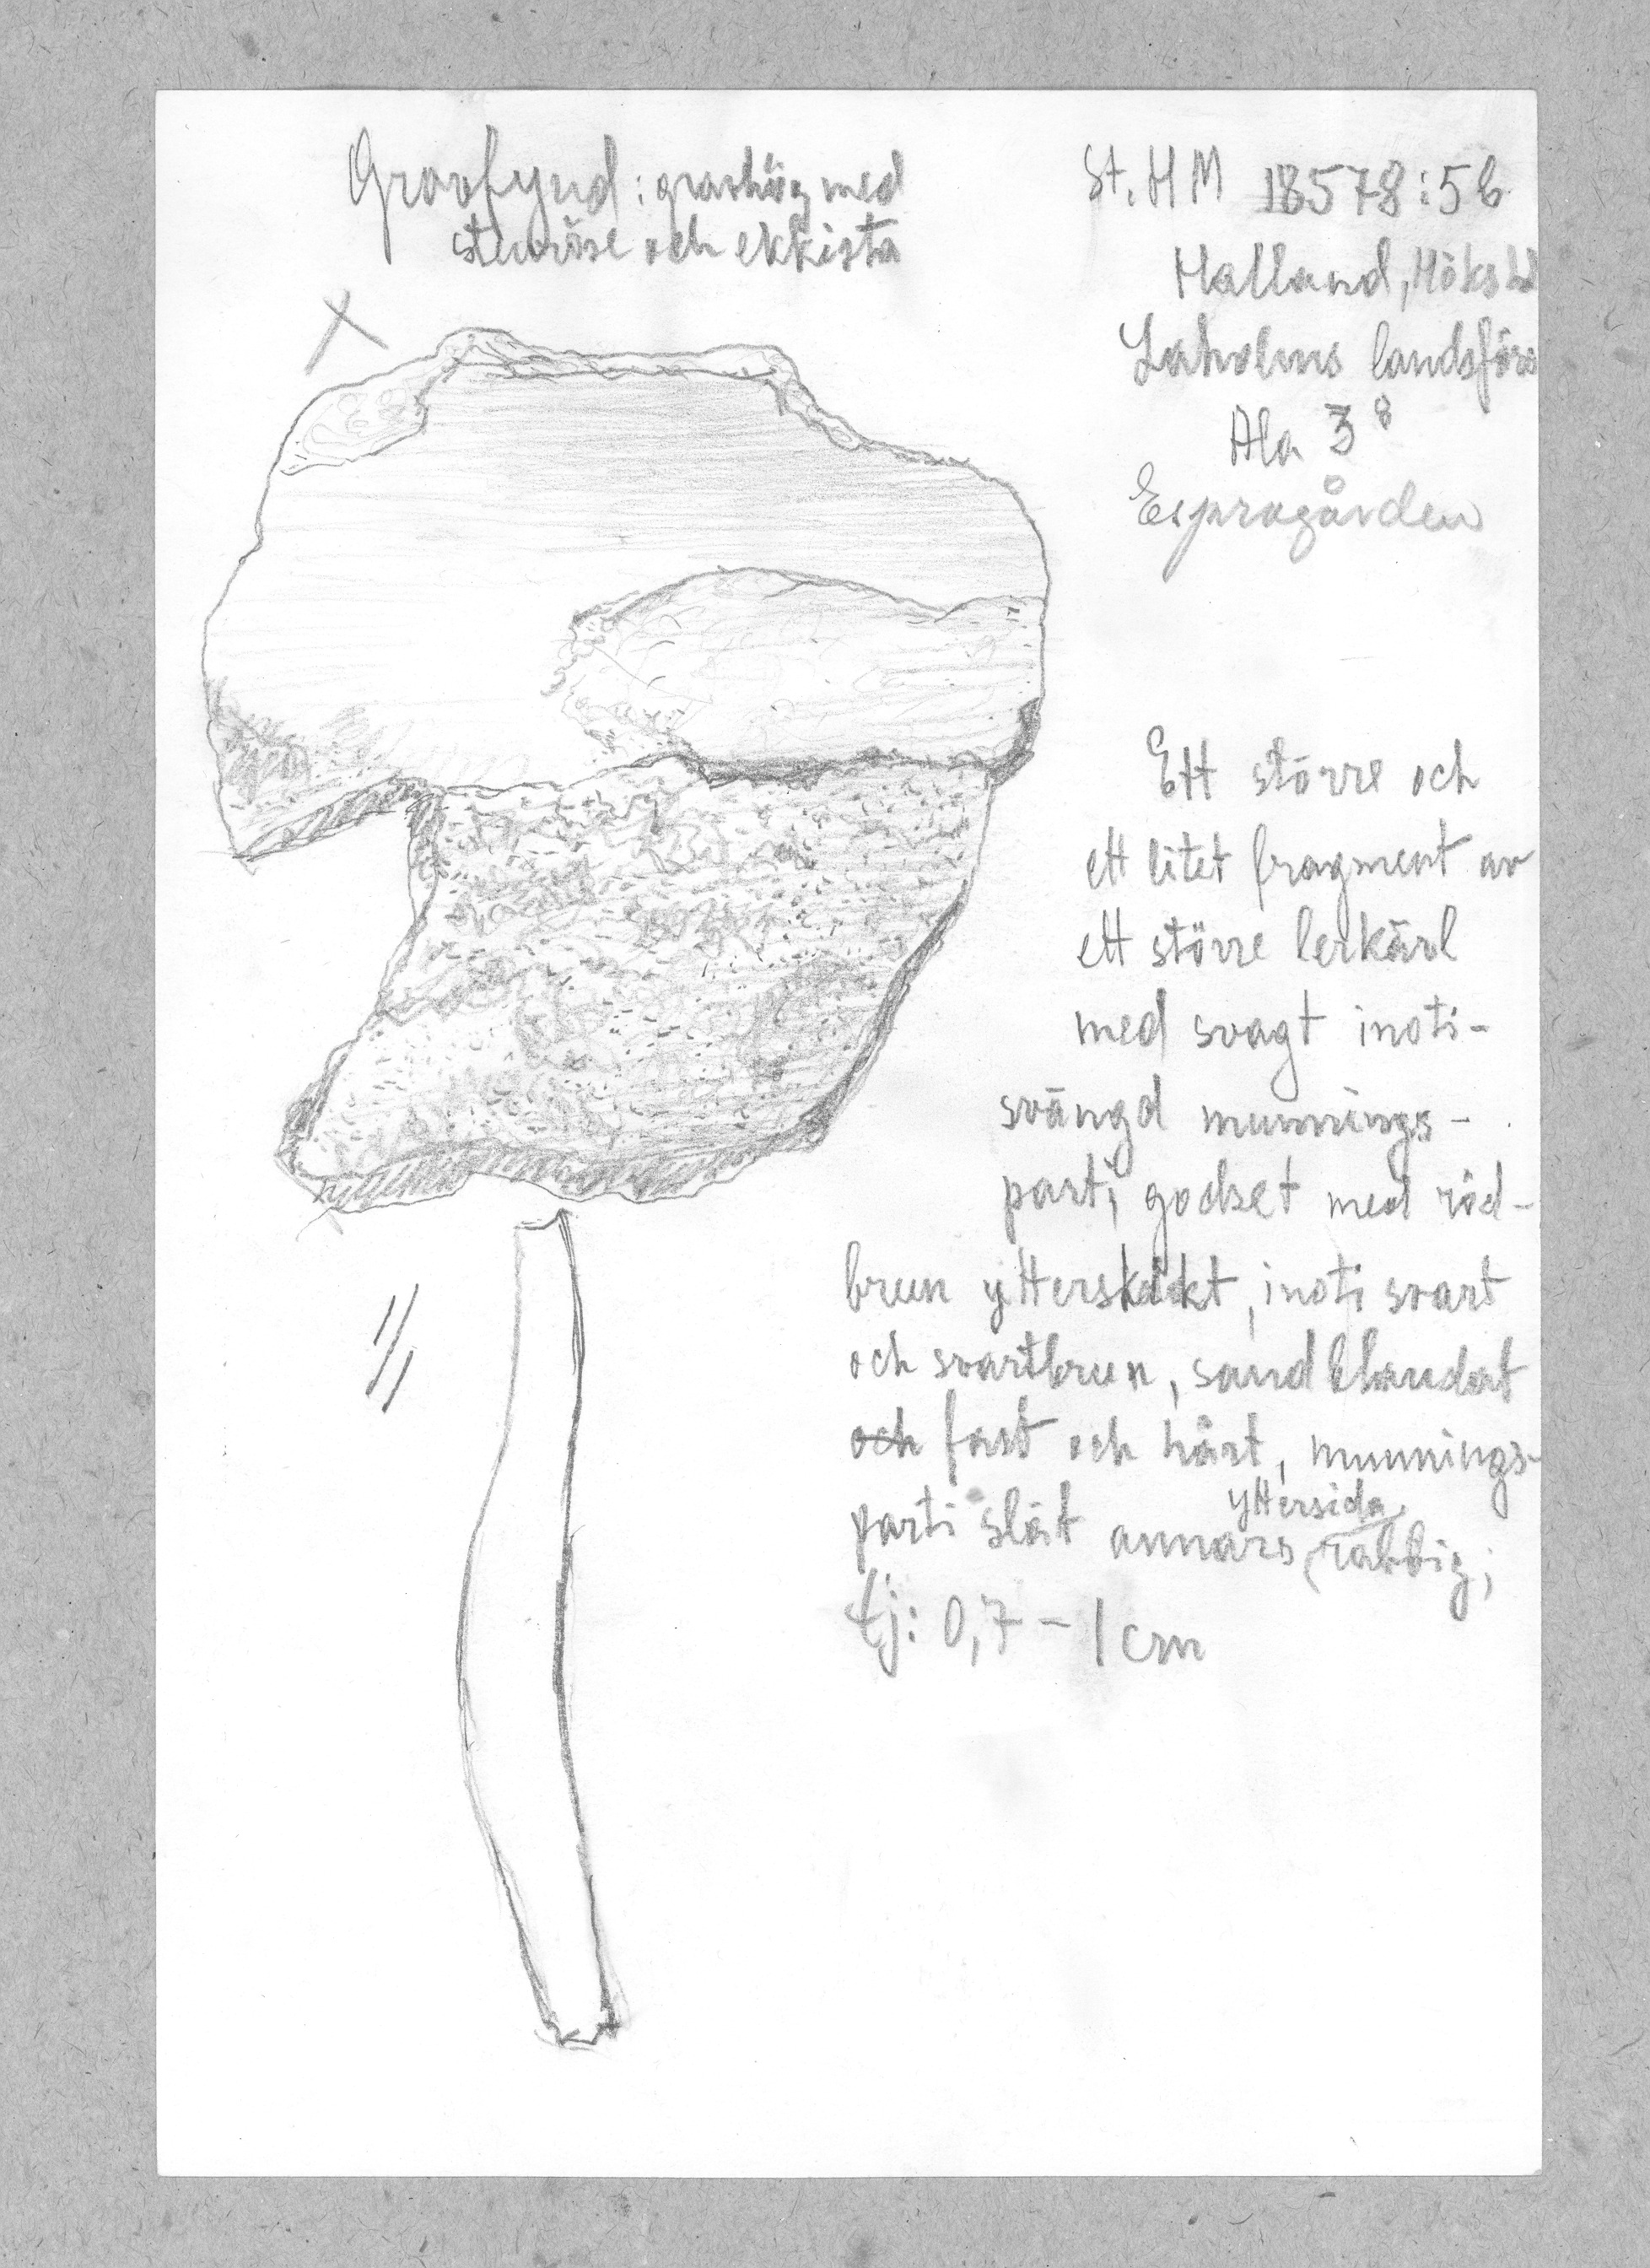 Gravfynd: gravhög med
stenröse och ekkista
St. H M 18578:5b
Halland, Höks hd
Laholms landsförs
Ala 3⁸
Espragården
Ett större och
ett litet fragment av
ett större lerkärl
med svagt inåt-
svängd mynnings-
parti, godset med röd-
brun ytterskikt, inåt svart
och svartbrun, sandblandat
och fast och hårt, mynnings-
parti slät annars yttersida rabbig;
tj: 0,7 - 1 cm
1/1